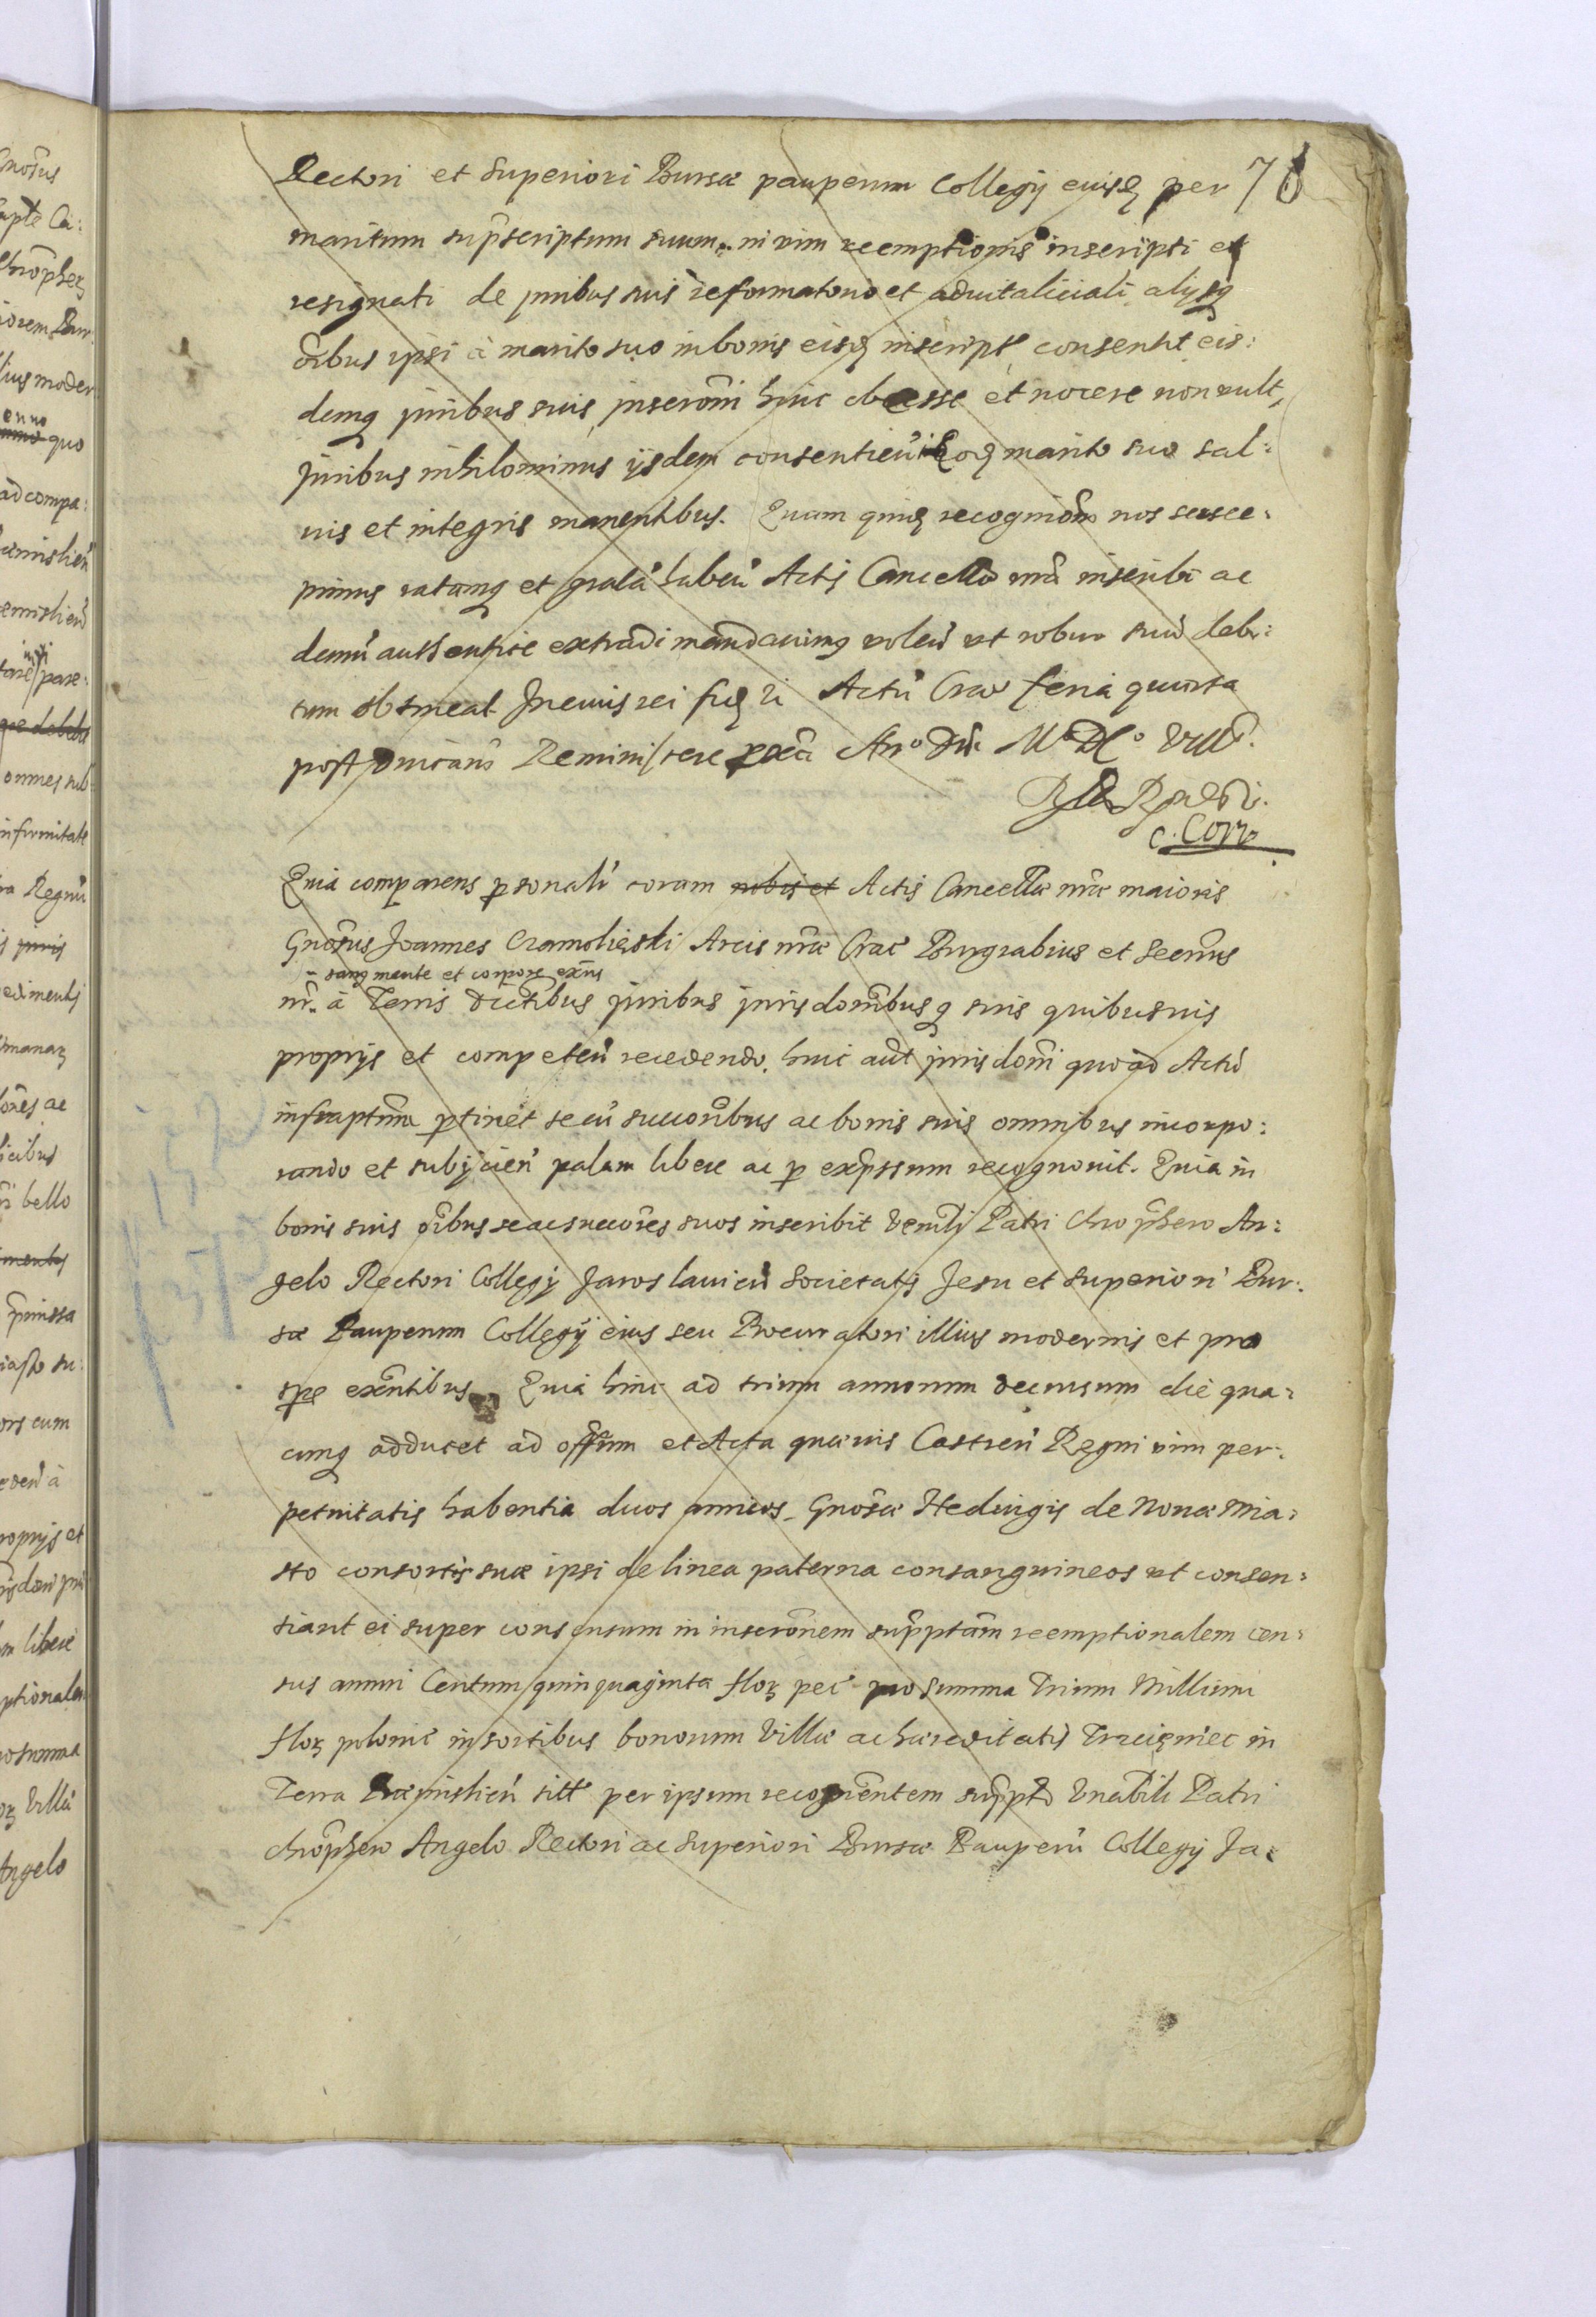 Rectori et Superiori Bursæ pauperum Collegij eiusd per 78
maritum supscriptum suum in vim reemptionis inscripti et
resignati de juribus suis reformatorio et aduitaliciali alijsq
oibus ipsi à marito suo in bonis eisd inscript consentit eis:
demq juribus suis inscroni huic obesse et nocere non vult,
juribus nihilominus ijsdem consentien eod marito suo sal:
uis et integris manentibus. Quam quid recognicom nos susce:
pimus ratamq et grata haben Actis Cancellæ nræ inscribi ac
demu authentice extradi mandauimq volen vt robur suu debi:
tum obtineat In cuius rei fid Actu Crac feria quarta
post Dnicam Reminiscere Anº Dni MºDCº
C. Corr
Quia comparens psonalr coram nobis et Actis Cancellæ nræ maioris
Gnosus Joannes Cramolięski Arcis nræ Crac Burgrabius et Secrius
sanq mente et corpore exns
nr. à Terris dictibus juribus jurisdonibusq suis quibusuis
proprijs et competen recedendo, huic aut jurisdoni quoad Actu
infraptum ptinet se cu succoribus ac bonis suis omnibus incorpo:
rando et subijcien palam libere ac p expssum recognouit. Quia in
bonis suis oibus se ac succores suos inscribit Venrli Patri Chrophero An:
gelo Rectori Collegij Jaroslauien Societatis Jesu et Superiori Bur:
sæ Pauperum Collegij eius seu Procuratori illius modernis et pro
tpe exntibus Quia hinc ad trium annorum decursum die qua:
cunq adducet ad offum et Acta quæuis Castren Regni vim per:
petuitatis habentia duos amicos Gnosæ Hedwigis de Nonæ Mia:
sto consortis suæ ipsi de linea paterna consanguineos vt consen:
tiant ei super consensum in inscronem supptam reemptionalem cen:
sus annui Centum quinquaginta floꝝ pec pro summa Trium Millium
floꝝ polonic in sortibus bonorum Villæ ac hæreditatis Trzcięniec in
Terra Præmislien sitt per ipsum recognentem suppto Vnabili Patri
Chrophero Angelo Rectori ac Superiori Bursæ Pauperu Collegij Ja: